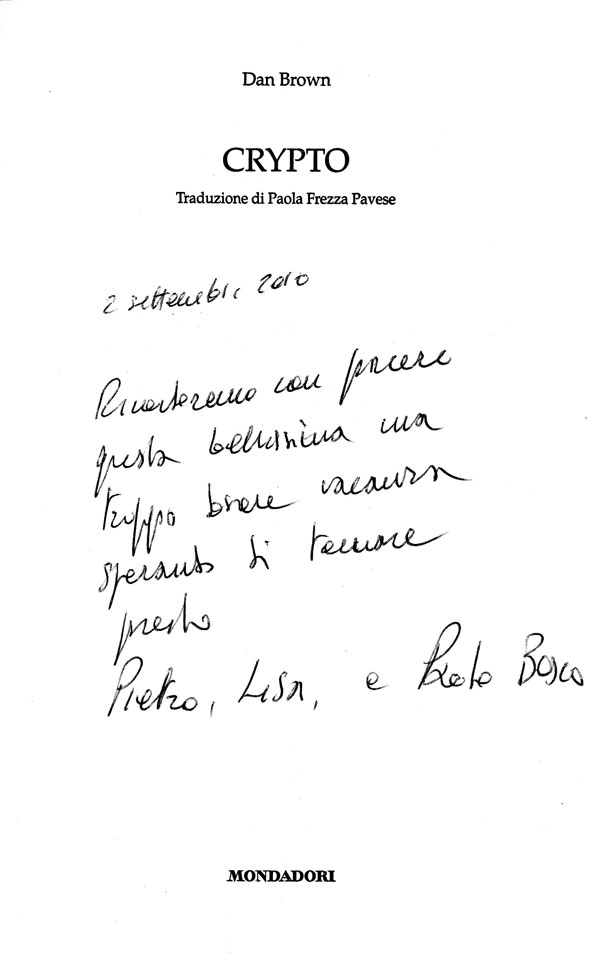 Dan Brown
CRYPTO
Traduzione di Paola Frezza Pavese
2 settembre 2010
Ricorderemo con piacere
questa bellissima ma
troppo breve vacanza
sperando di tornare
presto
Pietro, Lisa, e Paolo Bosco
MONDADORI